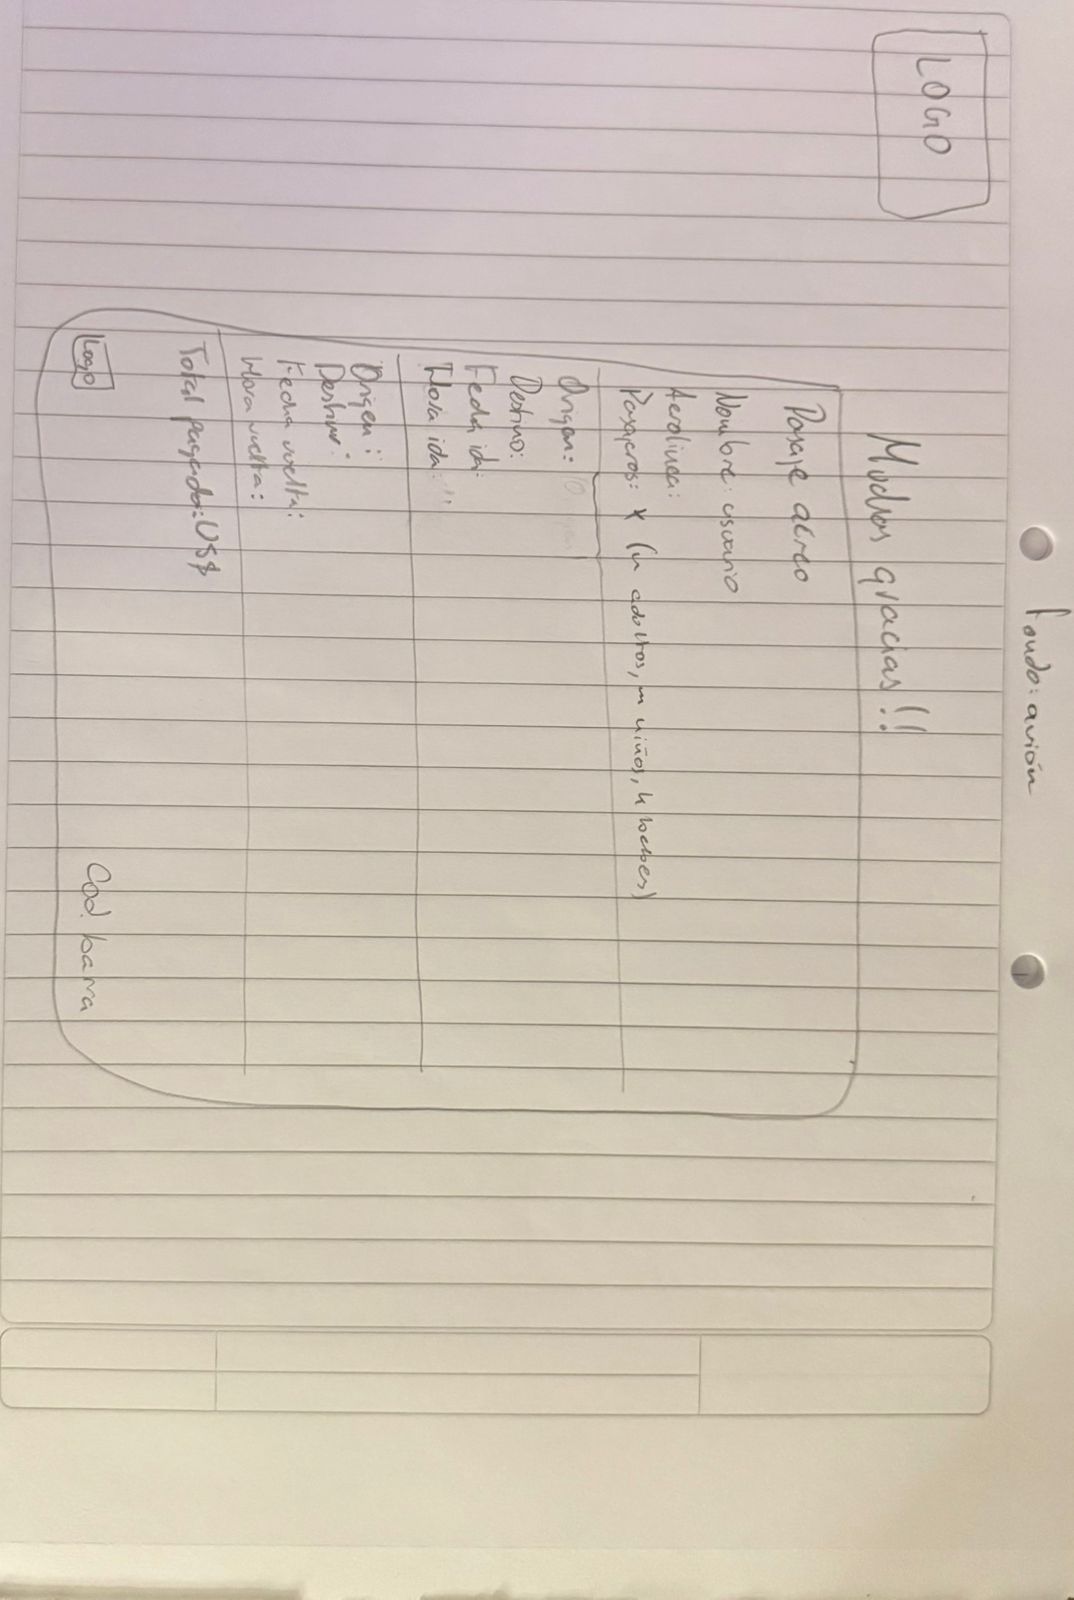 Fondo: avión
LOGO
Muchas gracias!!
Pasaje aéreo
Nombre: usuario
Aerolínea:
Pasajeros: x (n adultos, m niños, k bebes)
Origen:
Destino:
Fecha ida:
Hora ida:
Origen:
Destino:
Fecha vuelta:
Hora vuelta:
Total pagado: US$
Logo
Cod. barra